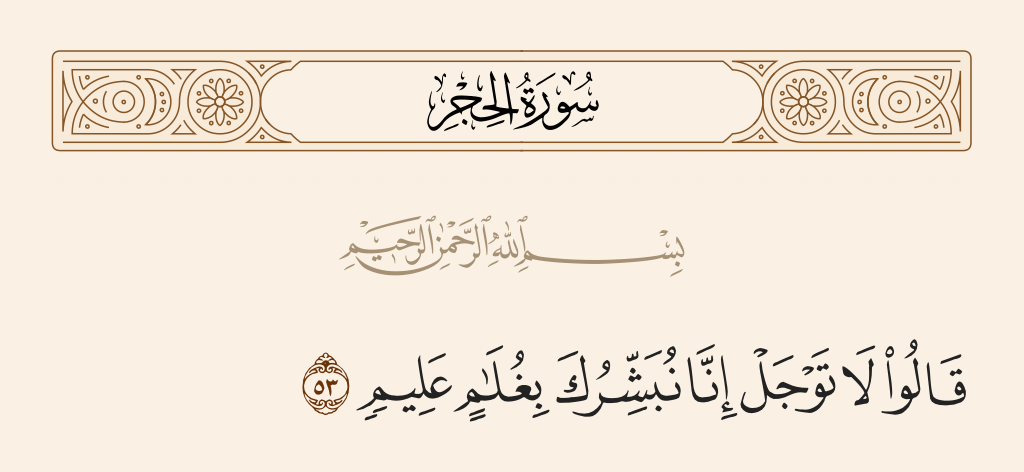 سُورَةُ الحِجْرِ
بِسْمِ ٱللَّهِ ٱلرَّحْمَٰنِ ٱلرَّحِيمِ
قَالُوا۟ لَا تَوْجَلْ إِنَّا نُبَشِّرُكَ بِغُلَٰمٍ عَلِيمٍ ٥٣